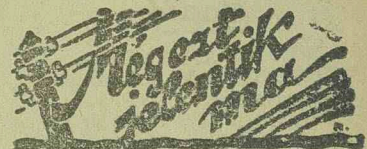 Mégezt
jelentik
ma